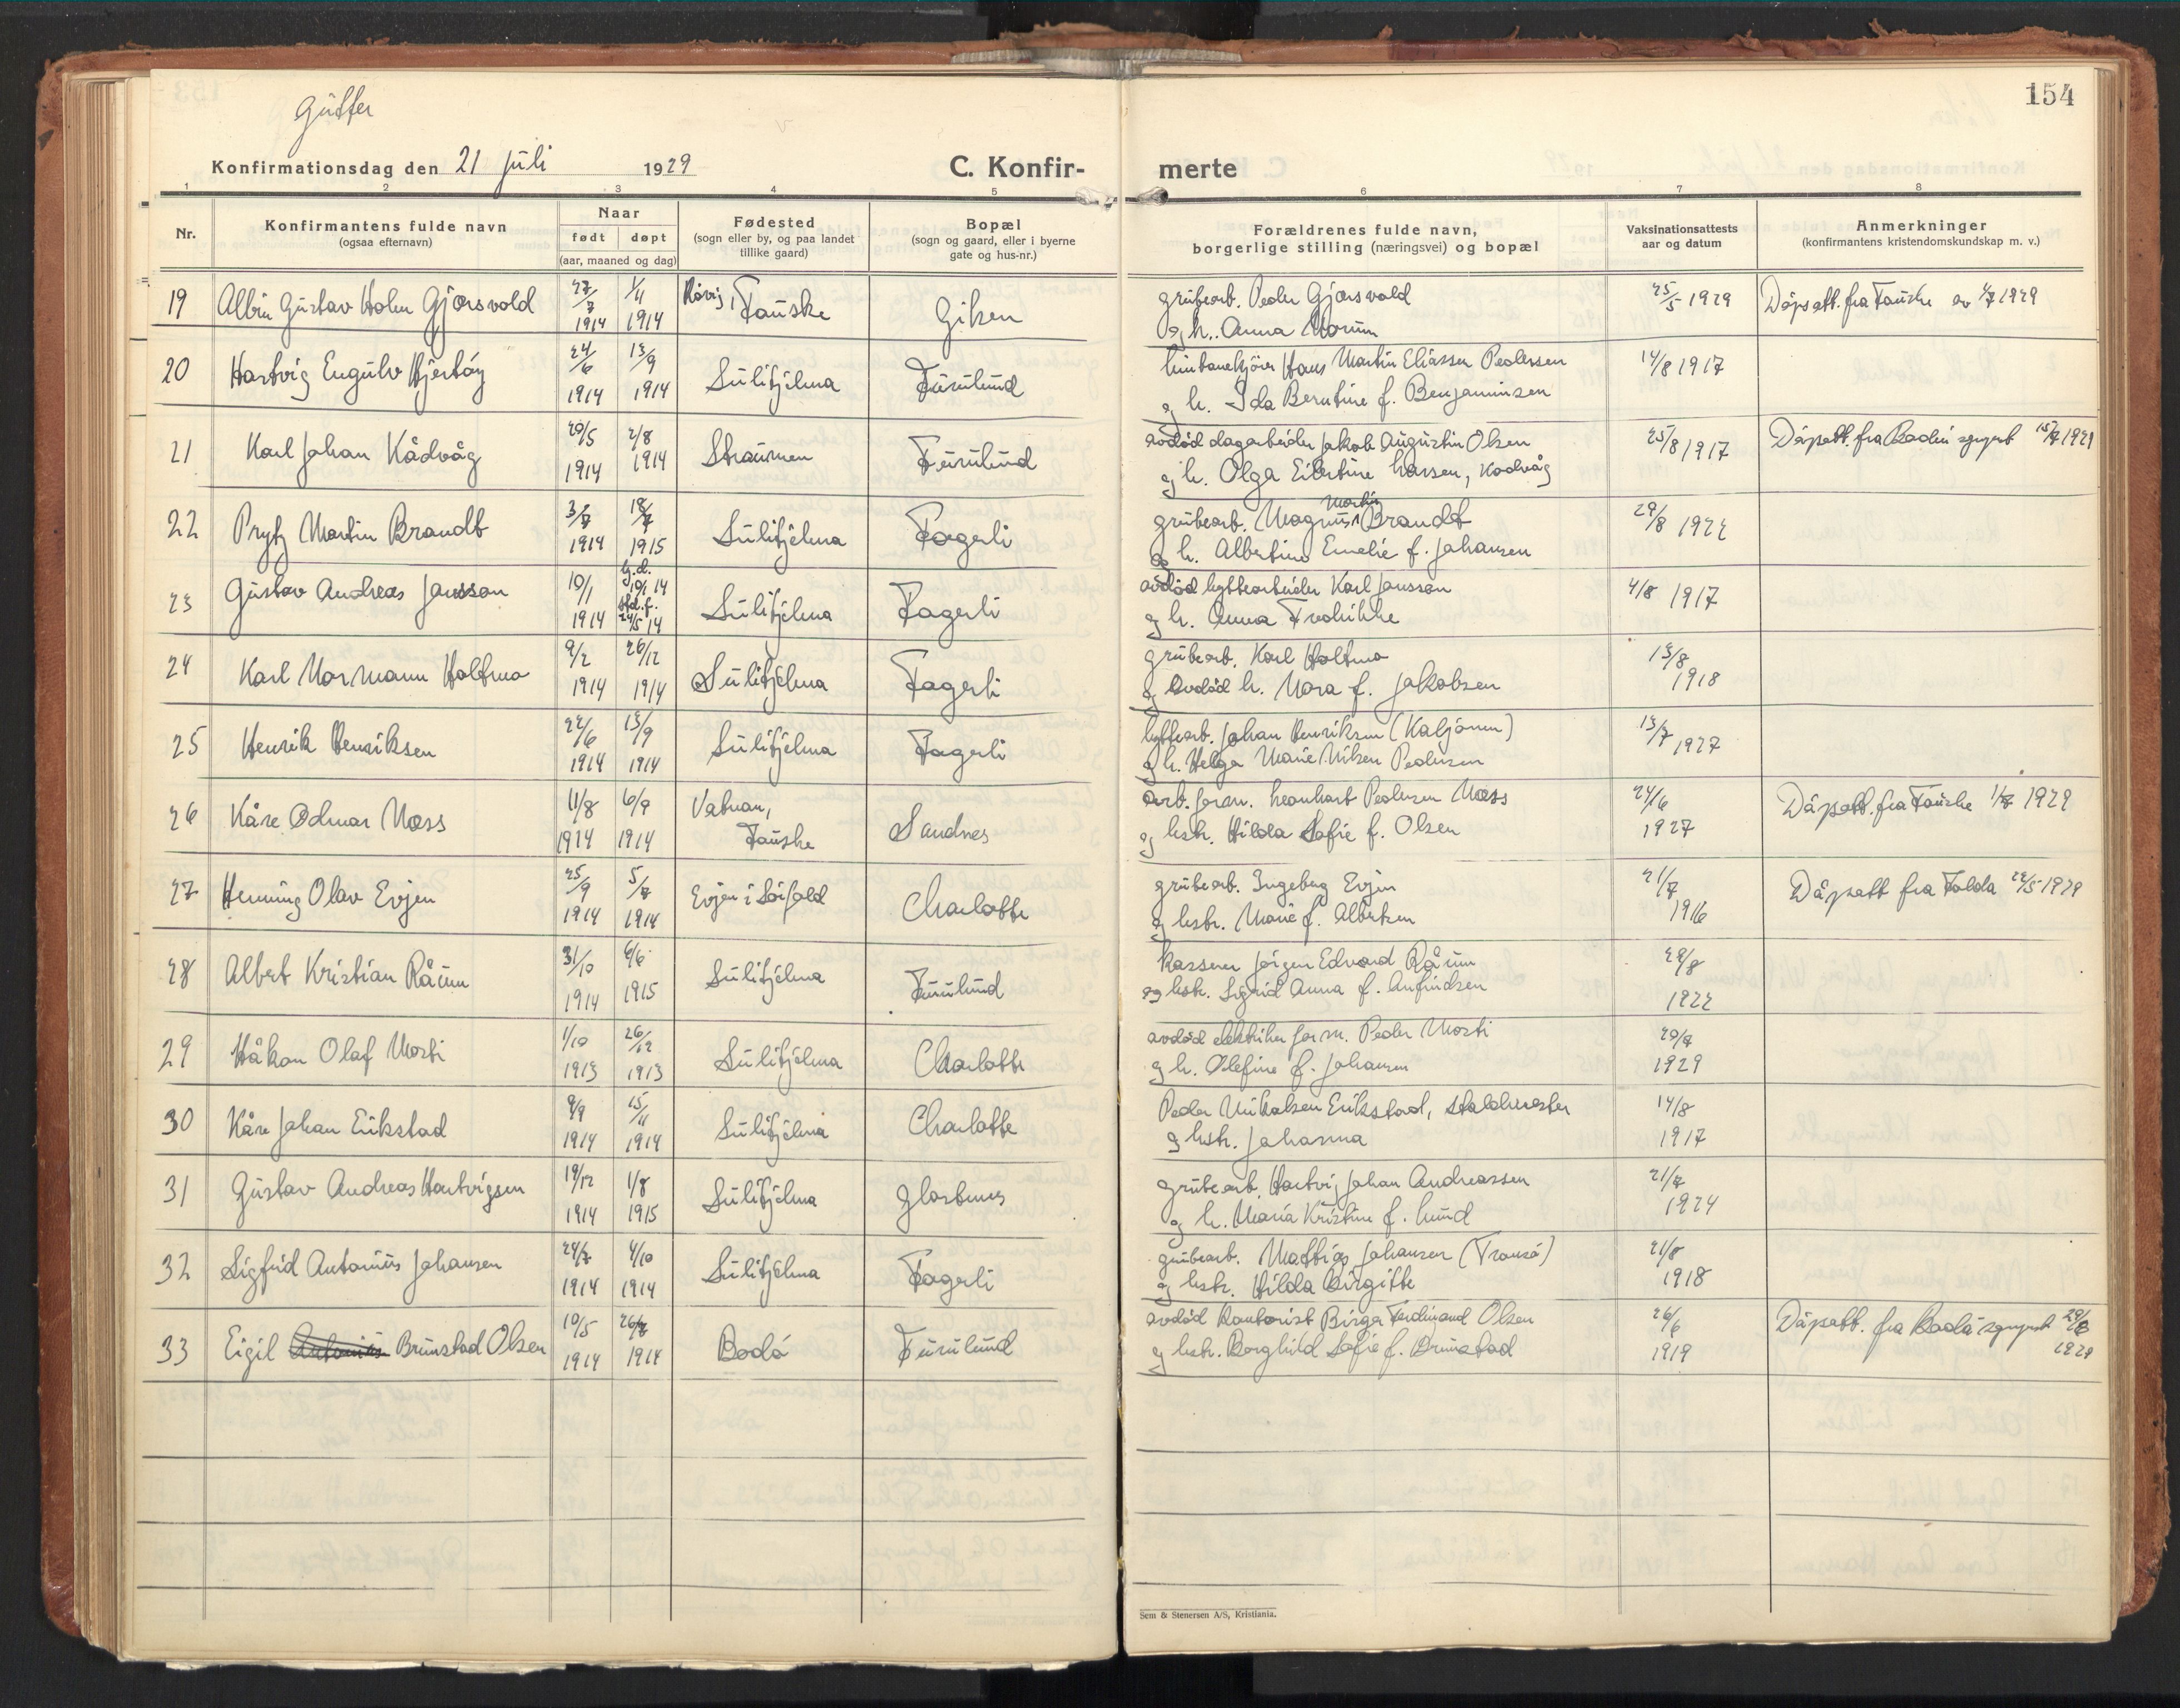 154
Gutter
Konfirmationsdag den 21 juli 1929
C. Konfir-
merte
1 2 3 4 5 6 7 8
Nr.
Konfirmantens fulde navn
(ogsaa efternavn)
Naar
født døpt
(aar, maaned og dag)
Fødested
(sogn eller by, og paa landet
tillike gaard)
Bopæl
(sogn og gaard, eller i byerne
gate og hus-nr.)
Forældrenes fulde navn,
borgerlige stilling (næringsvei) og bopæl
Vaksinationsattests
aar og datum
Anmerkninger
(konfirmantens kristendomskundskap m. v.)
19 Albin Gustav Holm Gjørsvold 27/7 1914 1/11 1914 Røvig, Fauske Giken
grubearb. Peder Gjørsvold
og h. Anna
25/5 1929 Dåpsatt. fra Fauske av 1/7 1929
20 Hartvig Engulv Hjertøy 24/6 1914 13/9 1914 Sulitjelma Furulund
Hans Martin Eliassen Pedersen
og h. Ida Berntine f. Benjaminsen
14/8 1917
21 Karl Johan Kådvåg 20/5 1914 2/8 1914 Straumen Furulund
avdød dagarbeider Jakob Augustin Olsen
og h. Olga Eilertine Larsen, Kodvåg
25/8 1917 Dåpsatt. fra 15/7 1929
22 Prytz Martin Brandt 3/7 1914 18/7 1915 Sulitjelma Fagerli
grubearb. Magnus Martin Brandt
og h. Albertine Emelie f. Johansen
29/8 1922
23 Gustav Andreas Jansson 10/1 1914 hj.d. 10/1 14 stf. f. 24/5 14 Sulitjelma Fagerli
avdød hyttearbeider Karl Jansson
og h. Anna Fredrikke
4/8 1917
24 Karl Normann Holtmo 9/2 1914 26/12 1914 Sulitjelma Fagerli
grubearb. Karl Holtmo
og avdød h. Nora f. Jakobsen
13/8 1918
25 Henrik Henriksen 22/6 1914 13/9 1914 Sulitjelma Fagerli
hyttearb. Johan Henriksen (Kaljonen)
og h. Helga Marie Nilsen Pedersen
13/7 1927
26 Kåre Odmar Moss 11/8 1914 6/9 1914 Vatnan, Fauske Sandnes
arb.form. Leonhart Pedersen Moss
og hstr. Hilda Sofie f. Olsen
24/6 1927 Dåpsatt. fra Fauske 1/7 1929
27 Henning Olav Evjen 25/9 1914 5/7 1914 Evjen i Sørfold Charlotte
grubearb. Ingeberg Evjen
og hstr. Marie f. Albertsen
21/7 1916 Dåpsatt fra Folda 22/5 1929
28 Albert Kristian Råum 31/10 1914 6/6 1915 Sulitjelma Furulund
kasserer Jørgen Edvard Råum
og hstr. Sigrid Anna f. Anfindsen
28/8 1922
29 Håkon Olaf Morti 1/10 1913 26/12 1913 Sulitjelma Charlotte
avdød elektriker form. Peder Morti
og h. Olefine f. Johansen
20/7 1929
30 Kåre Johan Erikstad 9/9 1914 15/11 1914 Sulitjelma Charlotte
Peder Mikalsen Erikstad, staldmester
og hstr. Johanna
14/8 1917
31 Gustav Andreas Hartvigsen 19/12 1914 1/8 1915 Sulitjelma Glastunes
grubearb. Hartvig Johan Andreassen
og h. Maria Kristine f. Lund
21/7 1924
32 Sigfrid Antonius Johansen 24/7 1914 4/10 1914 Sulitjelma Fagerli
grubearb. Mathias Johansen (Tromsø)
og hstr. Hilda Birgitte
21/8 1918
33 Eigil Antonius Brunstad Olsen 10/5 1914 26/7 1914 Bodø Furulund
avdød kontorist Birger Ferdinand Olsen
og hstr. Borghild Sofie f. Brunstad
26/6 1919 Dåpsatt. fra Bodø sogneprest 29/6 1929
Sem & Stenersen A/S, Kristiania.